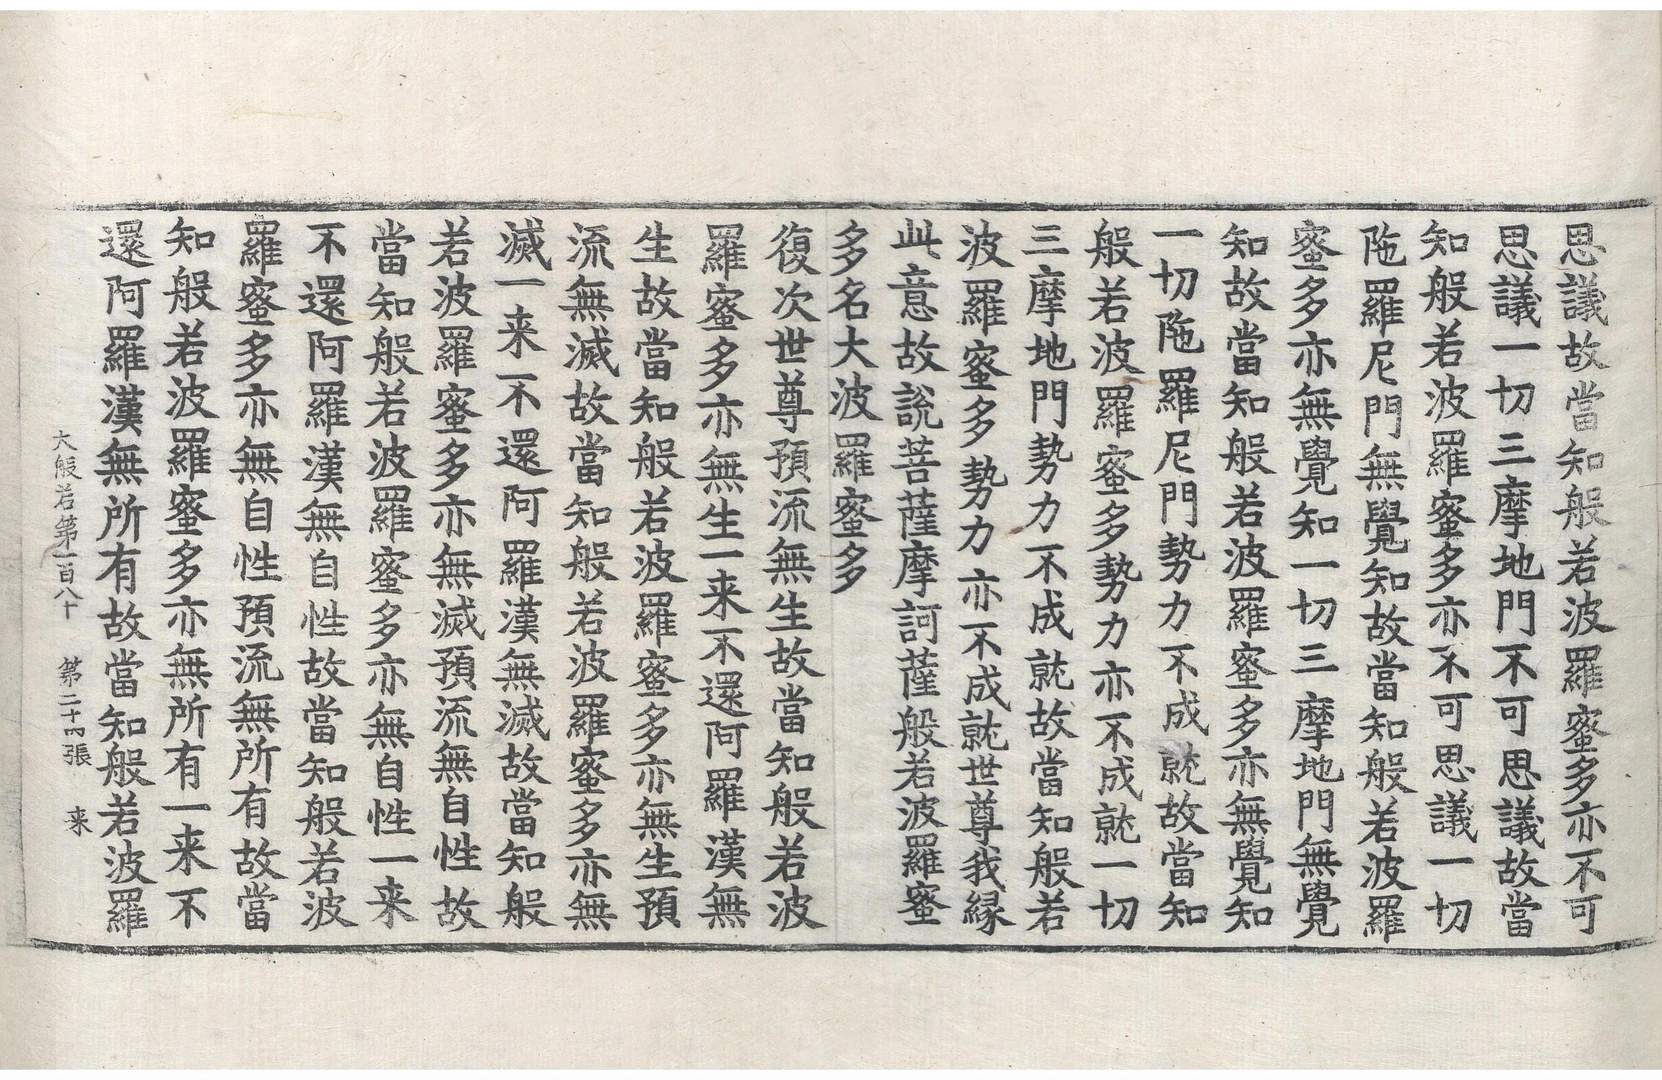 思議故當知般若波羅蜜多亦不可
思議一切三摩地門不可思議故當
知般若波羅蜜多亦不可思議一切
陁羅尼門無覺知故當知般若波羅
蜜多亦無覺知一切三摩地門無覺
知故當知般若波羅蜜多亦無覺知
一切陁羅尼門勢力不成就故當知
般若波羅蜜多勢力亦不成就一切
三摩地門勢力不成就故當知般若
波羅蜜多勢力亦不成就世尊我緣
此意故說菩薩摩訶薩般若波羅蜜
多名大波羅蜜多
復次世尊預流無生故當知般若波
羅蜜多亦無生一来不還阿羅漢無
生故當知般若波羅蜜多亦無生預
流無滅故當知般若波羅蜜多亦無
滅一来不還阿羅漢無滅故當知般
若波羅蜜多亦無滅預流無自性故
當知般若波羅蜜多亦無自性一来
不還阿羅漢無自性故當知般若波
羅蜜多亦無自性預流無所有故當
知般若波羅蜜多亦無所有一来不
還阿羅漢無所有故當知般若波羅
大般若第一百八十 第二十四張 来